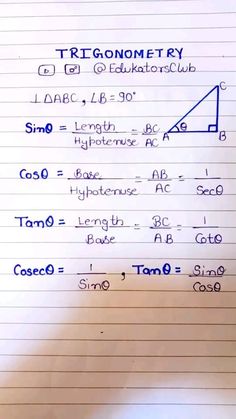 TRIGONOMETRY
@EdukatorsClub
⊥ΔABC, ∠B = 90°
C
Sinθ = Length/Hypotenuse = BC/AC
A θ B
Cosθ = Base/Hypotenuse = AB/AC = 1/Secθ
Tanθ = Length/Base = BC/AB = 1/Cotθ
Cosecθ = 1/Sinθ , Tanθ = Sinθ/Cosθ